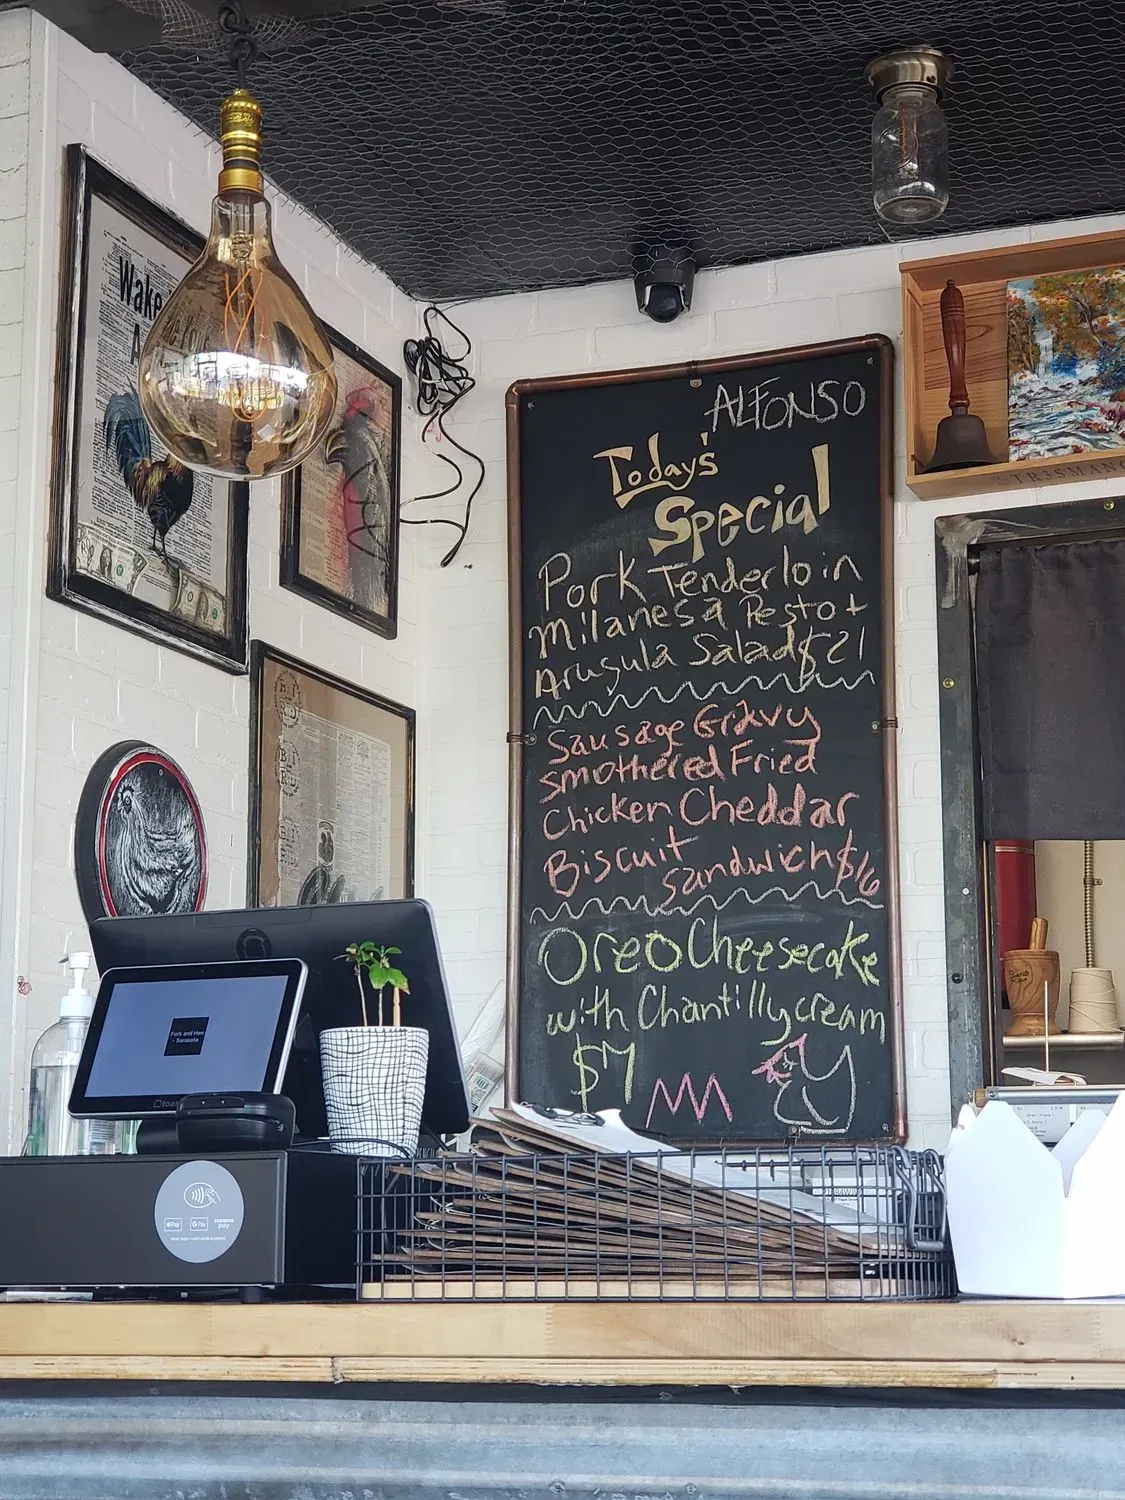 Wake
A
ALFONSO
Today's
Special
Pork Tenderloin
Milanesa Pesto +
Arugula Salad $21
Sausage Gravy
smothered Fried
Chicken Cheddar
Biscuit
sandwich $16
Oreo Cheesecake
with Chantilly cream
$7
Fork and Hen
- Sarasota
toast
Pay
G Pay
SAMSUNG
pay